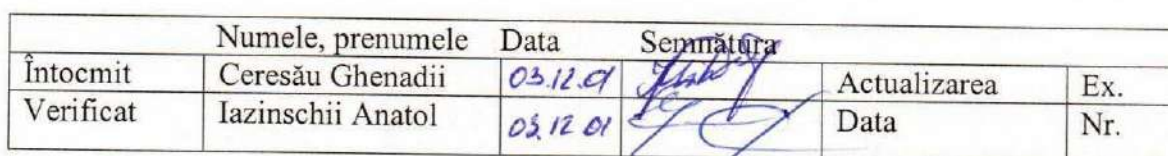 Numele, prenumele Data Semnătura
Întocmit Ceresău Ghenadii 03.12.01 Actualizarea Ex.
Verificat Iazinschii Anatol 03.12 01 Data Nr.